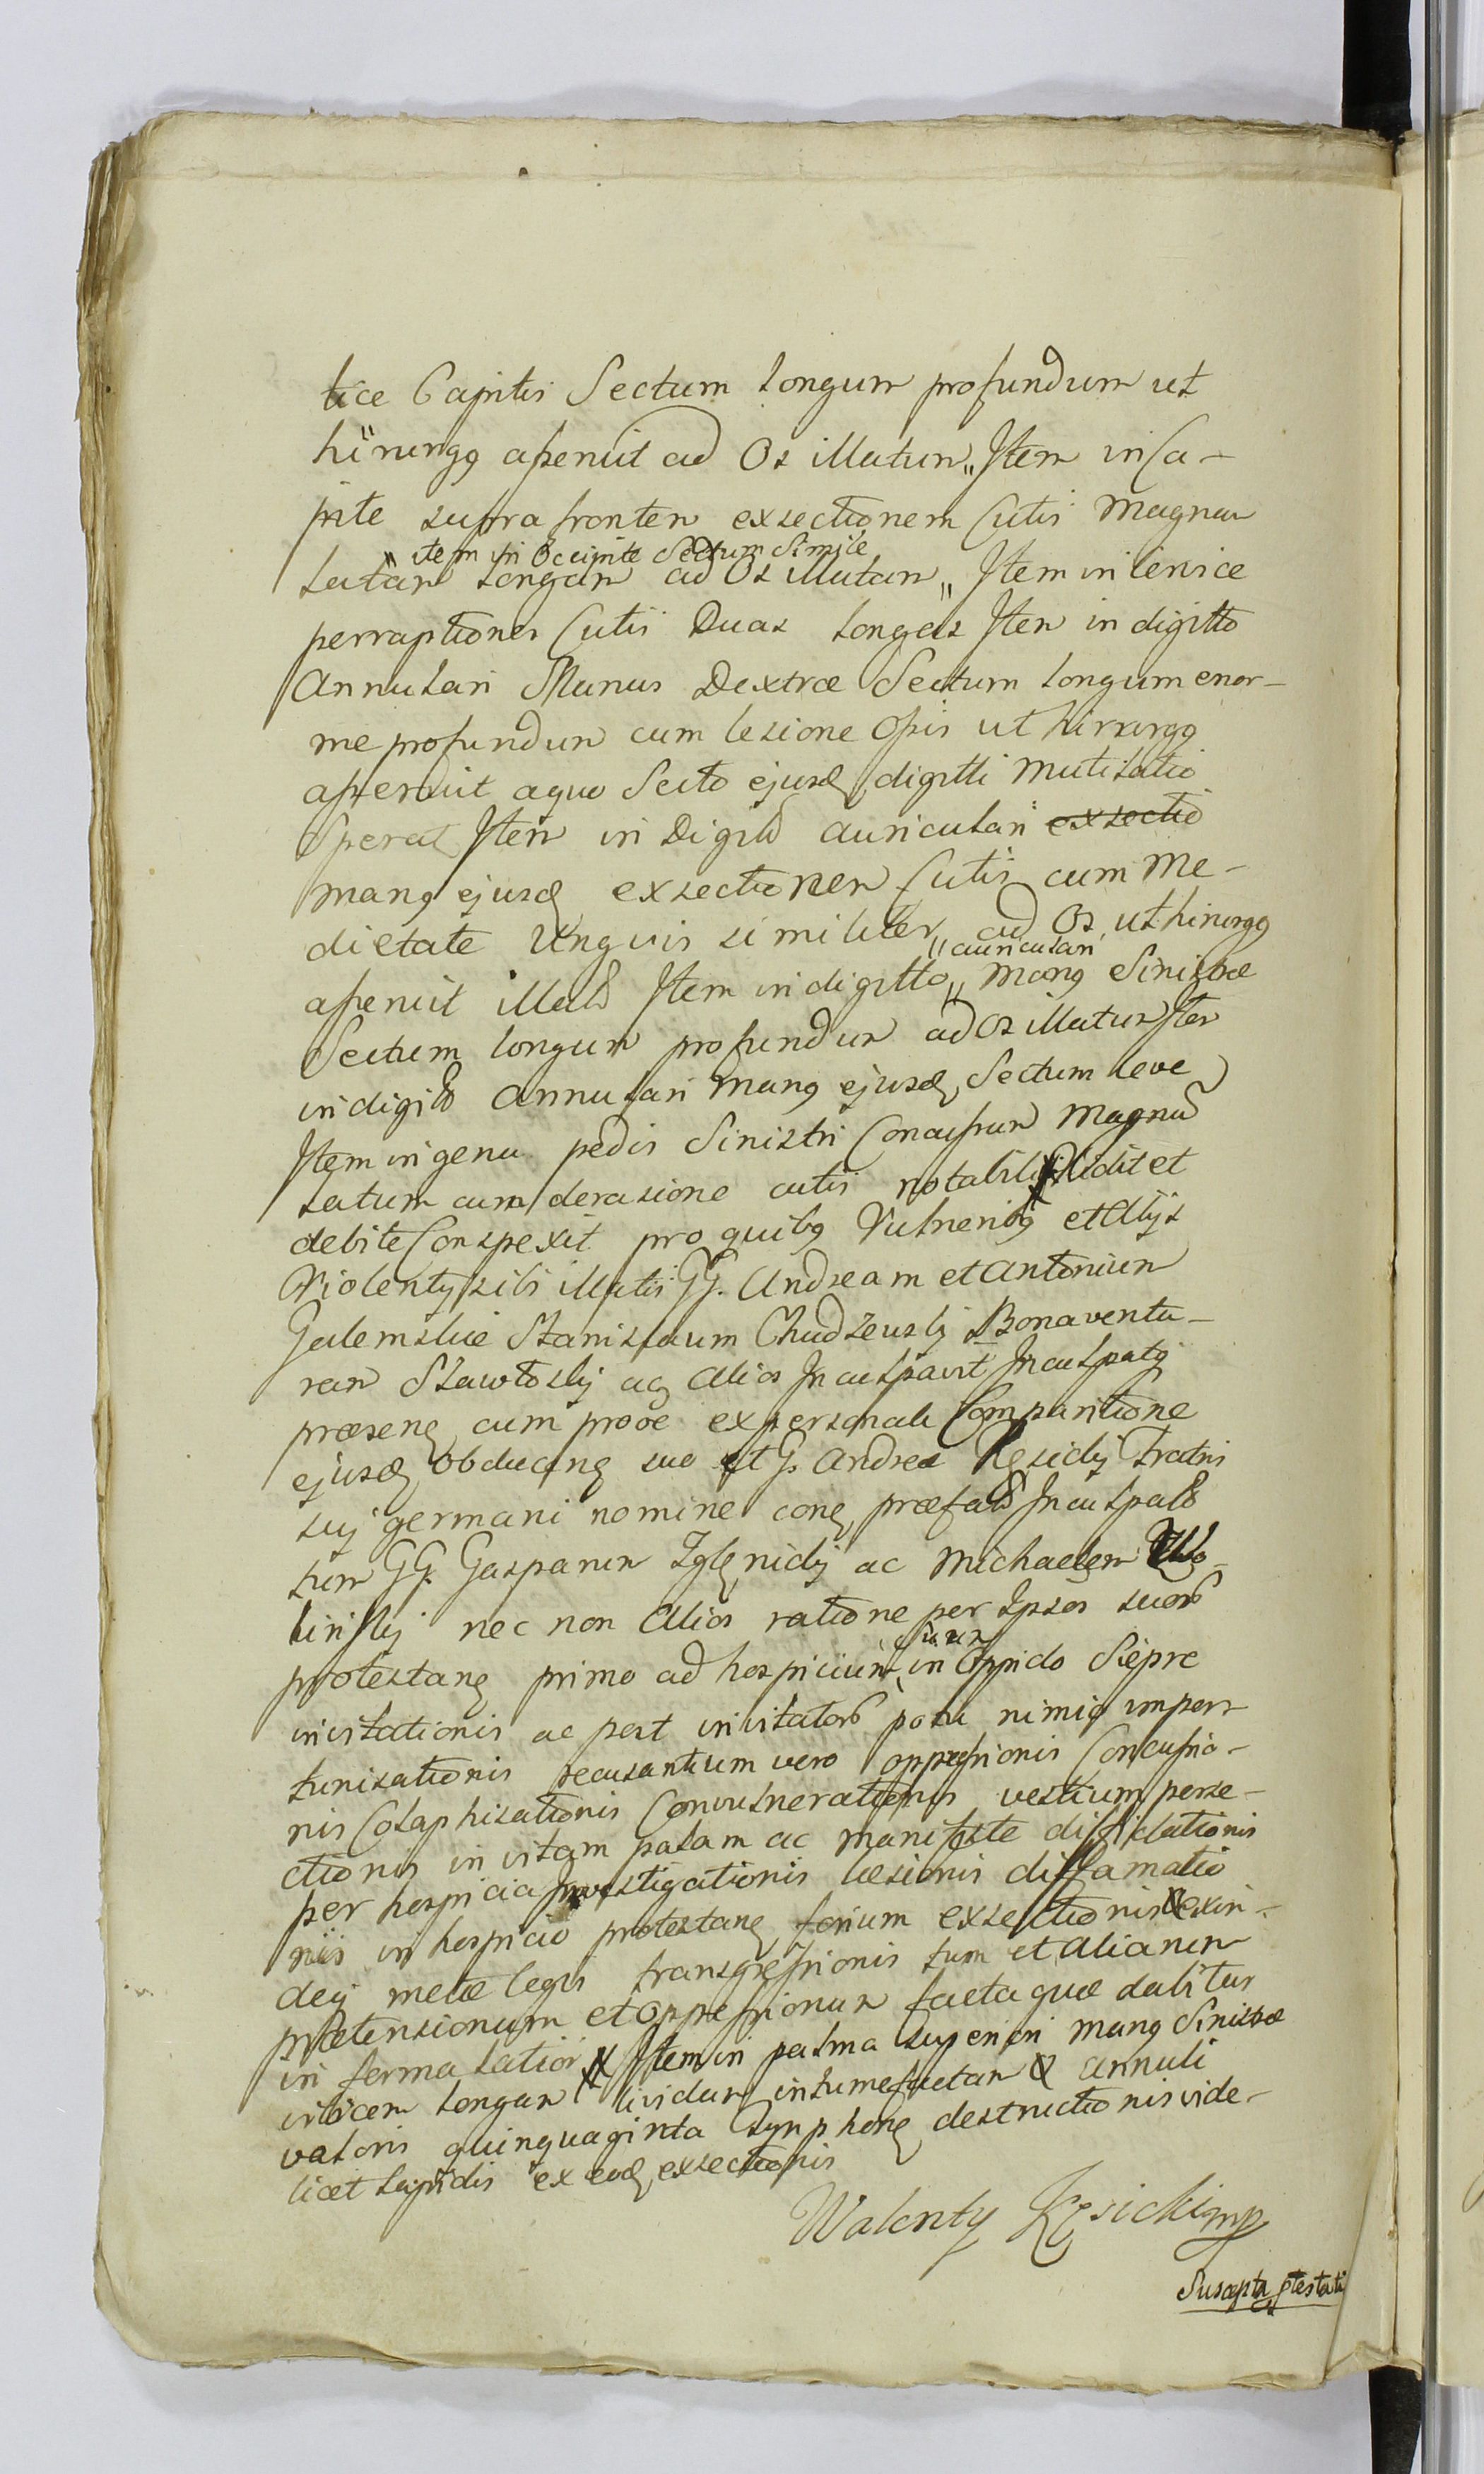 tice Capitis Sectum longum profundum ut
hirurgg aperuit ad Os illatum,, Item in Ca-
pite supra frontem exsectionem Cutis magnam
item in Occipite Sectum Simile
latam longam ad Os illatam,, Item in Cervice
perraptiones Cutis Duas longas Item in digitto
Annulari Manus Dextræ Sectum longum enor-
me profundum cum lesione Ossis ut hirurgg
aperuit a quo Secto ejusd digitti mutilatio
Sperat Item in Digito auriculari exsectio
mang ejusd exsectionem Cutis cum Me-
dietate Unguis similiter ad Os, ut hirurgg
,, auriculari
aperuit illato Item in digitto ,, mang Sinistræ
Sectum longum profundum ad Os illatum Item
in digito Annulari mang ejusd, Sectum leve
Item in genu pedis Sinistri Concussum Magnum
latum cum derasione cutis notabili Vidit et
debite Conspexit pro quibg Vulneribg et Alijs
Violentijs sibi illatis GG. Andream et Antonium
Galemskie Stanislaum Chudzenskj Bonaventu-
ram Szawłoskj ac Alios Inculpavit Inculpatg
præsens cum prove ex personali Comparitione
ejusd obducens suo et G. Andreæ Kęsickj Fratris
suj germani nomine cong præfato Inculpato
tum GG. Gasparum Zglenickj ac Michaelem Wo-
linskj nec non Alios ratione per Ipsos suor
suum
protestang primo ad hospicium in Oppido Siepre
invitationis ac post invitator potu nimio impor-
tunisationis recusantium vero oppressionis Concussio-
nis Colaphisationis Convulnerationis vestium perse-
ctionis in vitam palam ac manifeste diffidationis
per hospicia Investigationis læsionis diffamatio
nis in hospicio protestang forium exsectionis exin-
dej metæ legis transgressionis tum et aliarum
prætensionum et oppressionum facta quæ dabitur
in forma latiori Item in palma superiori mang Sinistræ
vibicem longam lividam intumefactam & annuli
valoris quinquaginta Tynphong destructionis vide-
licet lapidis ex eod exsectionis
Walenty Kęsicki mp
Suscepta ptestati